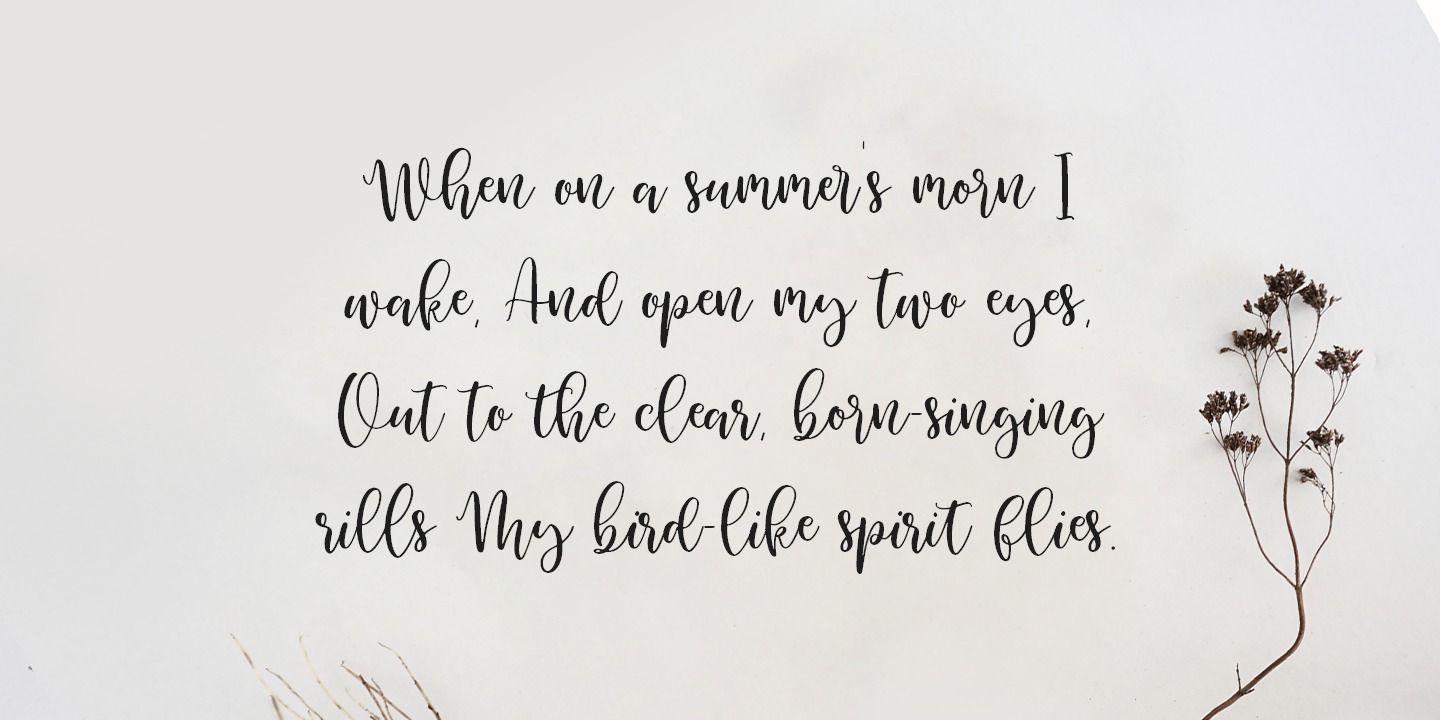 When on a summer's morn I
wake, And open my two eyes,
Out to the clear, born-singing
rills My bird-like spirit flies.